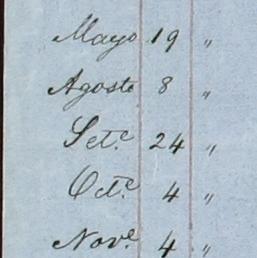 Mayo 19 "
Agosto 8 "
Set.e 24 "
Oct.e 4 "
Nov.e 4 "